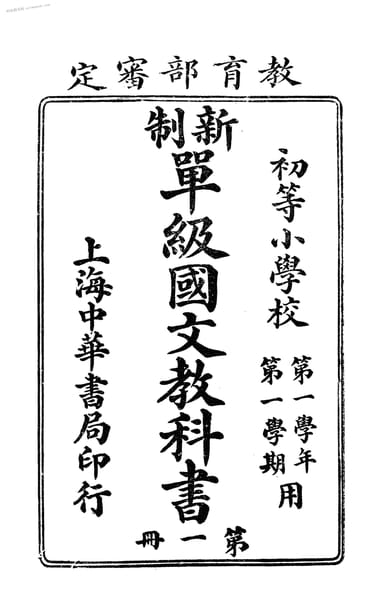 教育部審定
初等小學校
第一學年
第一學期
用
新制
單級國文教科書
第一冊
上海中華書局印行